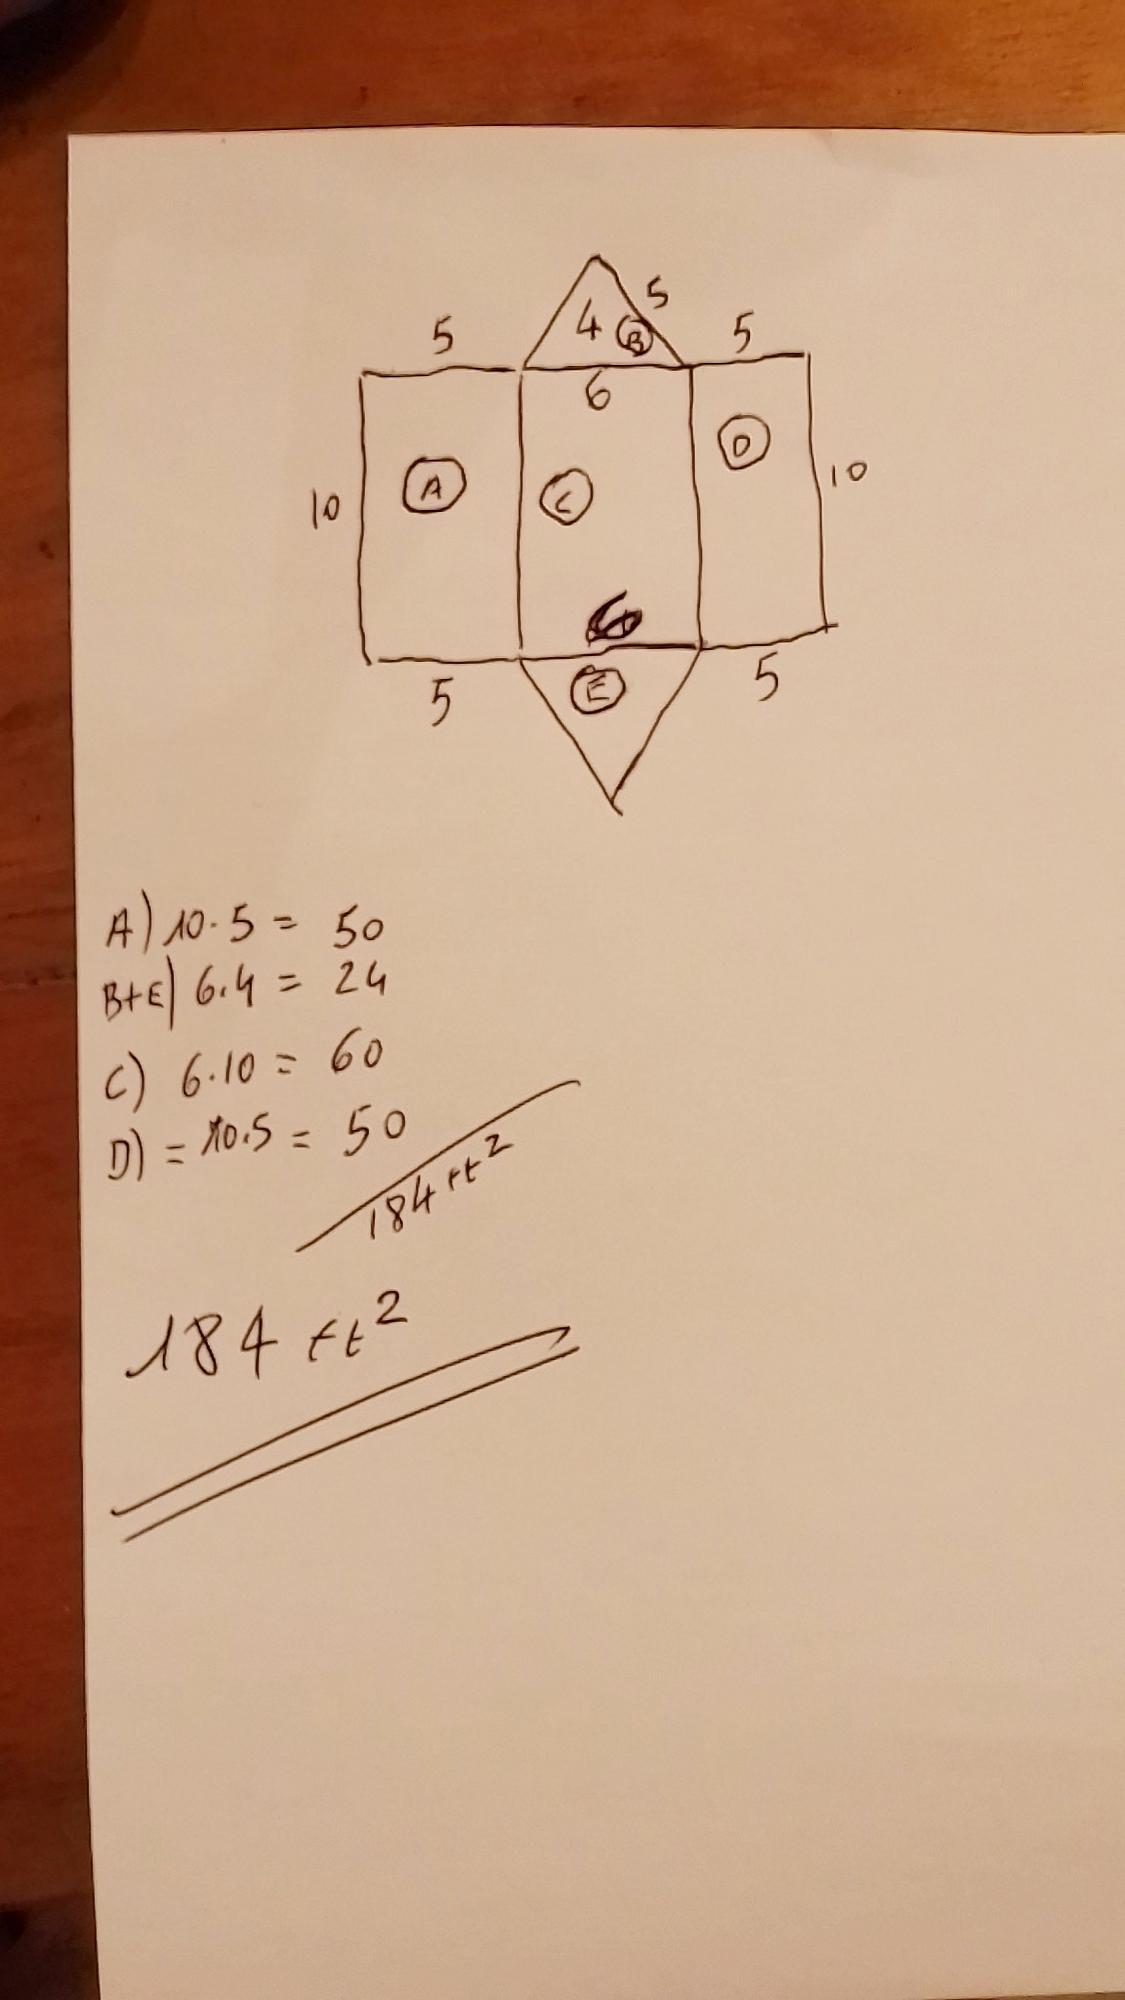 5
4 B 5
5
6
A
C
D
10
10
6
E
5
5
A) 10.5 = 50
B+E) 6.4 = 24
C) 6.10 = 60
D) = 10.5 = 50
184 ft²
184 ft²